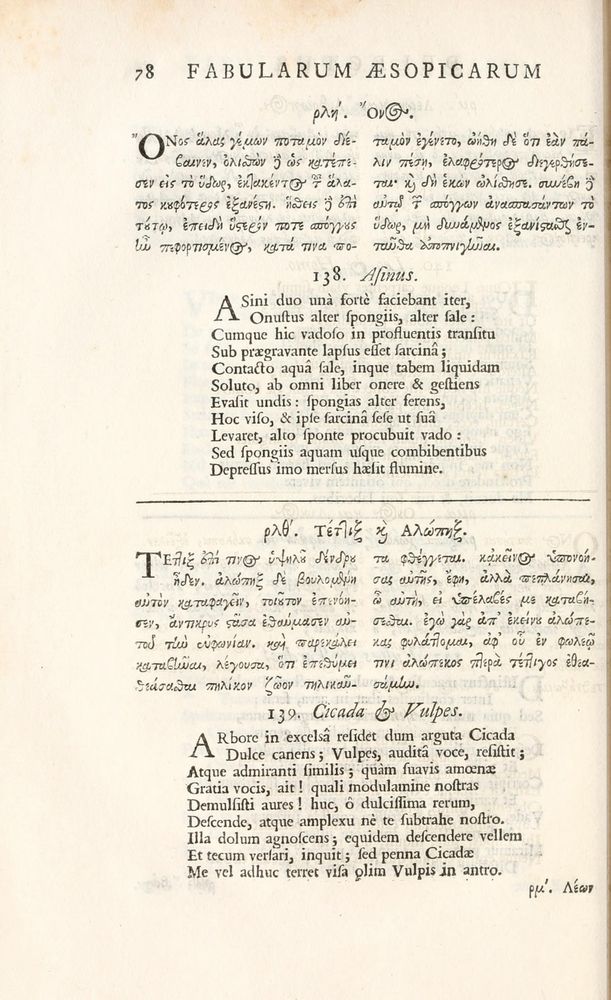 78 FABULARUM ÆSOPICARUM
ρλη΄. Ὄνος.
ὌΝος ἅλας γέμων ποταμὸν διέ-
βαινεν, ὀλισθὼν ᾖ ὡς κατέπε-
σεν εἰς τὸ ὕδωρ, ἐκτακέντος τ̃ ἅλα-
τος κουφότερος ἐξανέστη. ἡσθεὶς ᾖ ἐπὶ
τούτῳ, ἐπειδὴ ὕστερόν ποτε σπόγγους
ἦν πεφορτισμένος, κατά τινα πο-
ταμὸν ἐγένετο, ᾠήθη δὲ ὅτι ἐὰν πά-
λιν πέσῃ, ἐλαφρότερος διεγερθήσε-
ται· καὶ δὴ ἑκὼν ὠλίσθησε. συνέβη ᾖ
αὐτῷ τ̃ σπόγγων ἀνασπασάντων τὸ
ὕδωρ, μὴ δυνάμενος ἐξανίστασθαι ἐν-
ταῦθα ἀποπνιγῆναι.
138. Asinus.
ASini duo unà fortè faciebant iter,
Onustus alter spongiis, alter sale:
Cumque hic vadoso in profluentis transitu
Sub prægravante lapsus esset sarcinâ;
Contacto aquâ sale, inque tabem liquidam
Soluto, ab omni liber onere & gestiens
Evasit undis: spongias alter ferens,
Hoc viso, & ipse sarcinâ sese ut suâ
Levaret, alto sponte procubuit vado:
Sed spongiis aquam usque combibentibus
Depressus imo mersus hæsit flumine.
ρλθ΄. Τέτλιξ καὶ Ἀλώπηξ.
ΤΕτλιξ ἐπί τινος ὑψηλοῦ δένδρου
ᾖδεν. ἀλώπηξ δὲ βουλομένη
αὐτὸν καταφαγεῖν, τοιοῦτον ἐπενόη-
σεν, ἄντικρυς στᾶσα ἐθαύμασεν αὐ-
τοῦ τὴν εὐφωνίαν. καὶ παρεκάλει
καταβῆναι, λέγουσα, ὅτι ἐπεθύμει
θεάσασθαι πηλίκον ζῶον τηλικαῦ-
τα φθέγγεται. κἀκεῖνος ὑπονοή-
σας αὐτῆς, ἔφη, ἀλλὰ πεπλάνησαι,
ὦ αὐτὴ, εἰ ὑπέλαβές με καταβή-
σεσθαι. ἐγὼ γὰρ ἀπ’ ἐκείνου ἀλώπε-
κας φυλάττομαι, ἀφ’ οὗ ἐν φωλεῷ
τινι ἀλώπεκος πτερὰ τέττιγος ἐθεα-
σάμην.
139. Cicada & Vulpes.
ARbore in excelsâ residet dum arguta Cicada
Dulce canens; Vulpes, auditâ voce, resistit;
Atque admiranti similis; quàm suavis amœnæ
Gratia vocis, ait! quali modulamine nostras
Demulsisti aures! huc, ô dulcissima rerum,
Descende, atque amplexu nè te subtrahe nostro.
Illa dolum agnoscens; equidem descendere vellem
Et tecum versari, inquit; sed penna Cicadæ
Me vel adhuc terret visa olim Vulpis in antro.
ρμ΄. Λέων